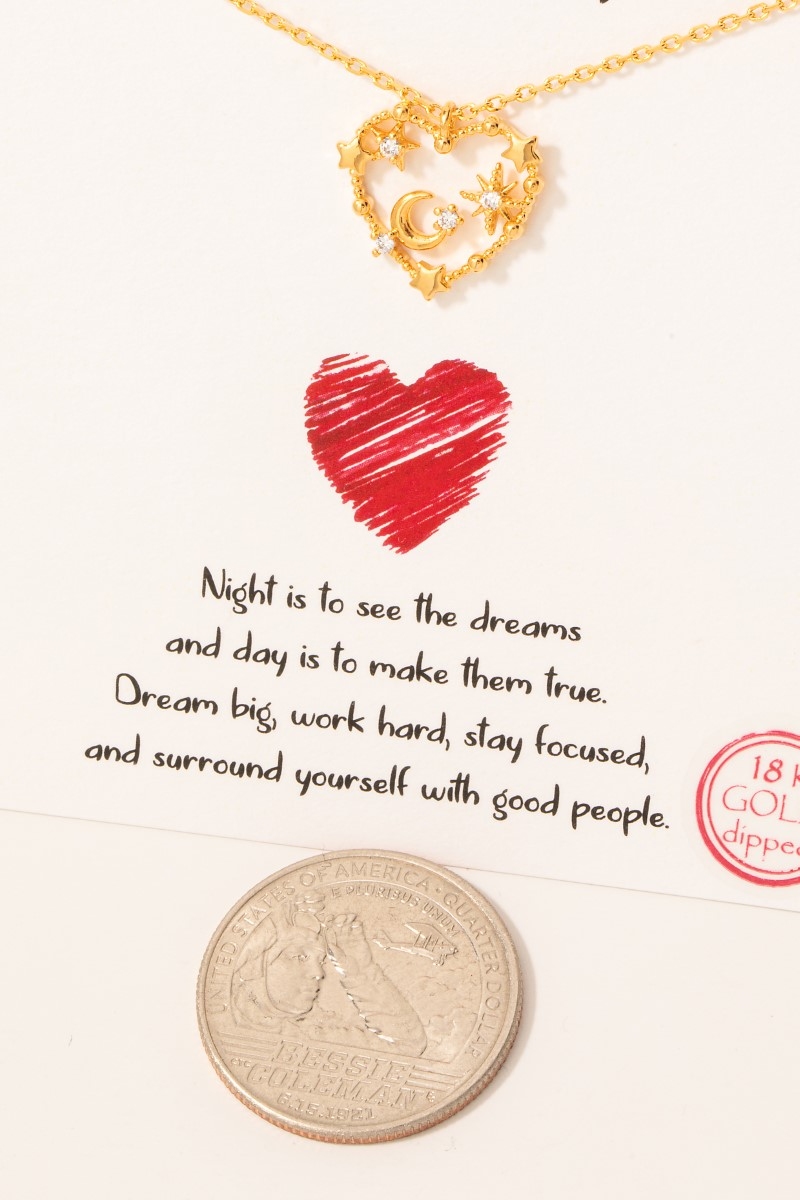 Night is to see the dreams
and day is to make them true.
Dream big, work hard, stay focused,
and surround yourself with good people.
18 K
GOL
dipped
UNITED STATES OF AMERICA · QUARTER DOLLAR
E PLURIBUS UNUM
BESSIE
COLEMAN
6.15.1921